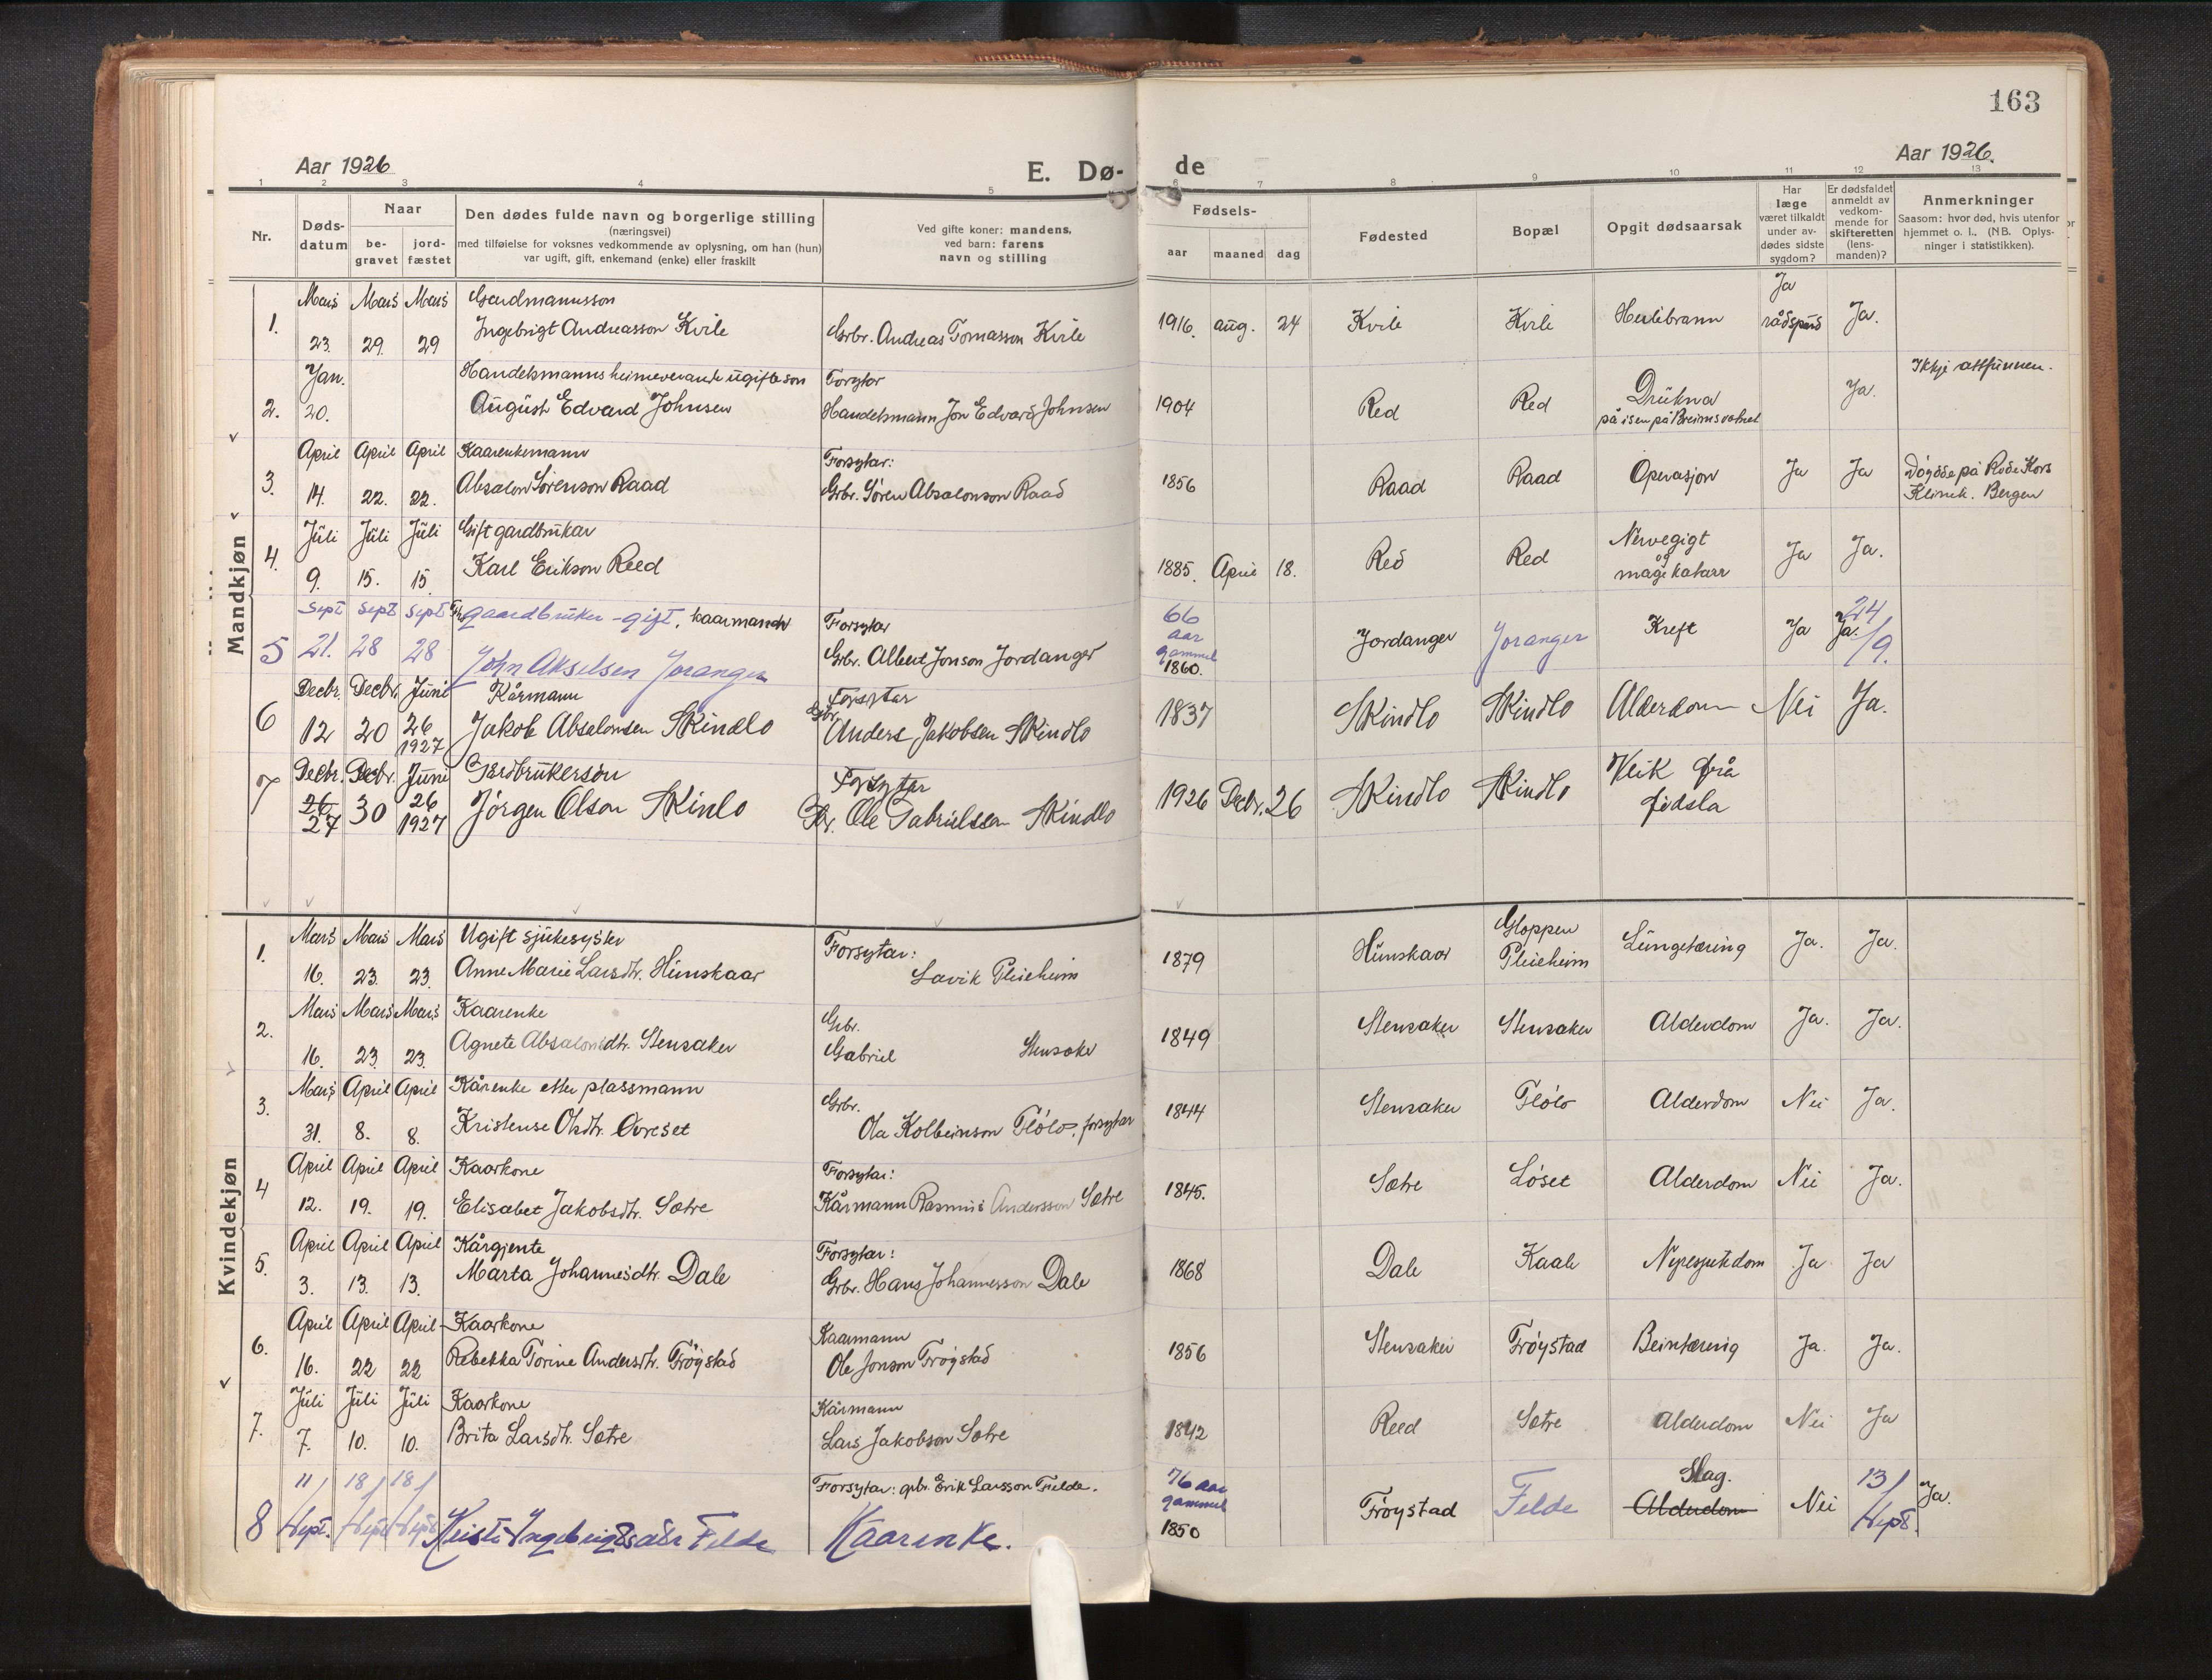 163
Aar 1926
E. Dø-
de
Aar 1926.
1 2 3 4 5 6 7 8 9 10 11 12 13
Nr.
Døds-
datum
Naar
be-
gravet
jord-
fæstet
Den dødes fulde navn og borgerlige stilling
(næringsvei)
med tilføielse for voksnes vedkommende av oplysning, om han (hun)
var ugift, gift, enkemand (enke) eller fraskilt
Ved gifte koner: mandens,
ved barn: farens
navn og stilling
Fødsels-
aar
maaned
dag
Fødested
Bopæl
Opgit dødsaarsak
Har
læge
været tilkaldt
under av-
dødes sidste
sygdom?
Er dødsfaldet
anmeldt av
vedkom-
mende for
skifteretten
(lens-
manden)?
Anmerkninger
Saasom: hvor død, hvis utenfor
hjemmet o. l., (NB. Oplys-
ninger i statistikken).
Mandkjøn
Mars Mars Mars Gardmannsson Ja
1. 23. 29. 29 Ingebrigt Andreasson Kvile Grbr. Andreas Tomasson Kvile 1916. aug. 24 Kvile Kvile Heilibrann rådspurd Ja.
Jan. Handelsmanns heimeverande ugifte son Forsytar Ikkje attfunnen.
2. 20. August Edvard Johnsen Handelsmann Jon Edvard Johnsen 1904 Red Red Drukna Ja.
på isen på Breimsvatnet
April April April Kaarenkemann Forsytar:
3. 14. 22. 22. Absalon Sørenson Raad Grbr. Søren Absalonson Raad 1856 Raad Raad Operasjon Ja Ja Døydde på Røde Kors
Klinik. Bergen
Juli Juli Juli Gift gardbrukar
4. 9. 15. 15. Karl Erikson Reed 1885. April 18. Red Red Nervegigt Ja Ja.
og
magekatarr
Sept Sept Sept gaardbruker - gift, kaarmann Forsytar 66
aar
gammel
5 21. 28 28 John Akselsen Joranger Grbr. Albert Jonson Jordanger 1860. Jordanger Joranger Kreft Ja Ja. 24/9.
Decbr. Decbr. Juni Kårmann Forsytar
6 12 20 26 Jakob Absalonsen Skindlo Gbr. Anders Jakobsen Skindlo 1837 Skindlo Skindlo Alderdom Nei Ja.
1927
Decbr. Decbr. Juni Gardbrukerson Forsytar
7 26 30 26 Jørgen Olson Skinlo Gbr. Ole Gabrielssen Skindlo 1926 Decbr. 26 Skindlo Skindlo Veik frå
27 1927 fødsla
Kvindekjøn
Mars Mars Mars Ugift sjukesyster Forsytar: Gloppen
1. 16. 23. 23. Anne Marie Larsdtr. Hunskaar Lavik Pleieheim 1879 Hunskaar Pleieheim Lungetæring Ja. Ja.
Mars Mars Mars Kaarenke Grbr.
2. 16. 23 23. Agnete Absalonsdtr. Stensaker Gabriel Stensaker 1849 Stensaker Stensaker Alderdom Ja. Ja.
Mars April April Kårenke etter plassmann Grbr.
3. 31. 8. 8. Kristense Olsdtr. Øvreset Ola Kolbeinson Flólo, forsytar 1844 Stensaker Flólo Alderdom Nei Ja.
April April April Kaarkone Forsytar:
4 12. 19. 19. Elisabet Jakobsdtr. Sætre Kårmann Rasmus Andersson Sætre 1845. Sætre Løset Alderdom Nei Ja.
April April April Kårgjente Forsytar:
5. 3. 13. 13. Marta Johannesdtr. Dale Grbr. Hans Johannesson Dale 1868 Dale Kaale Nyresjukdom Ja Ja
April April April Kaarkone Kaarmann
6. 16. 22 22 Rebekka Torine Andersdtr. Frøystad Ole Jonson Frøystad 1856 Stensaker Frøystad Beintæring Ja. Ja.
Juli Juli Juli Kaarkone Kårmann
7. 7. 10. 10. Brita Larsdtr. Sætre Lars Jakobson Sætre 1842 Reed Sætre Alderdom Nei Ja
11/ 18/ 18/ Forsytar: grbr. Erik Larsson Felde. 76 aar
gammel Slag. 13/ Ja.
8 Sept. Sept Sept Kristi Ingebrigtsdtr Felde Kaarenke. 1850 Frøystad Felde Alderdom Nei Sept.